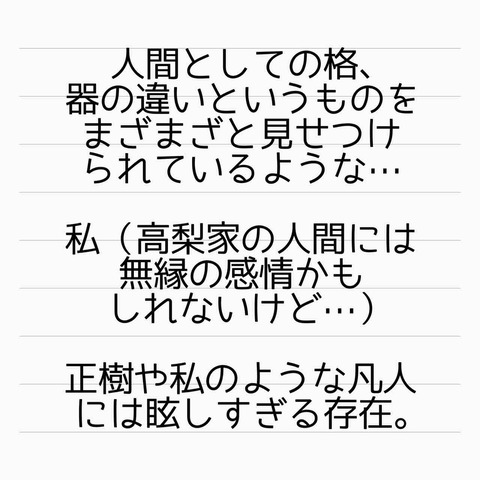 人間としての格、
器の違いというものを
まざまざと見せつけ
られているような…
私（高梨家の人間には
無縁の感情かも
しれないけど…）
正樹や私のような凡人
には眩しすぎる存在。